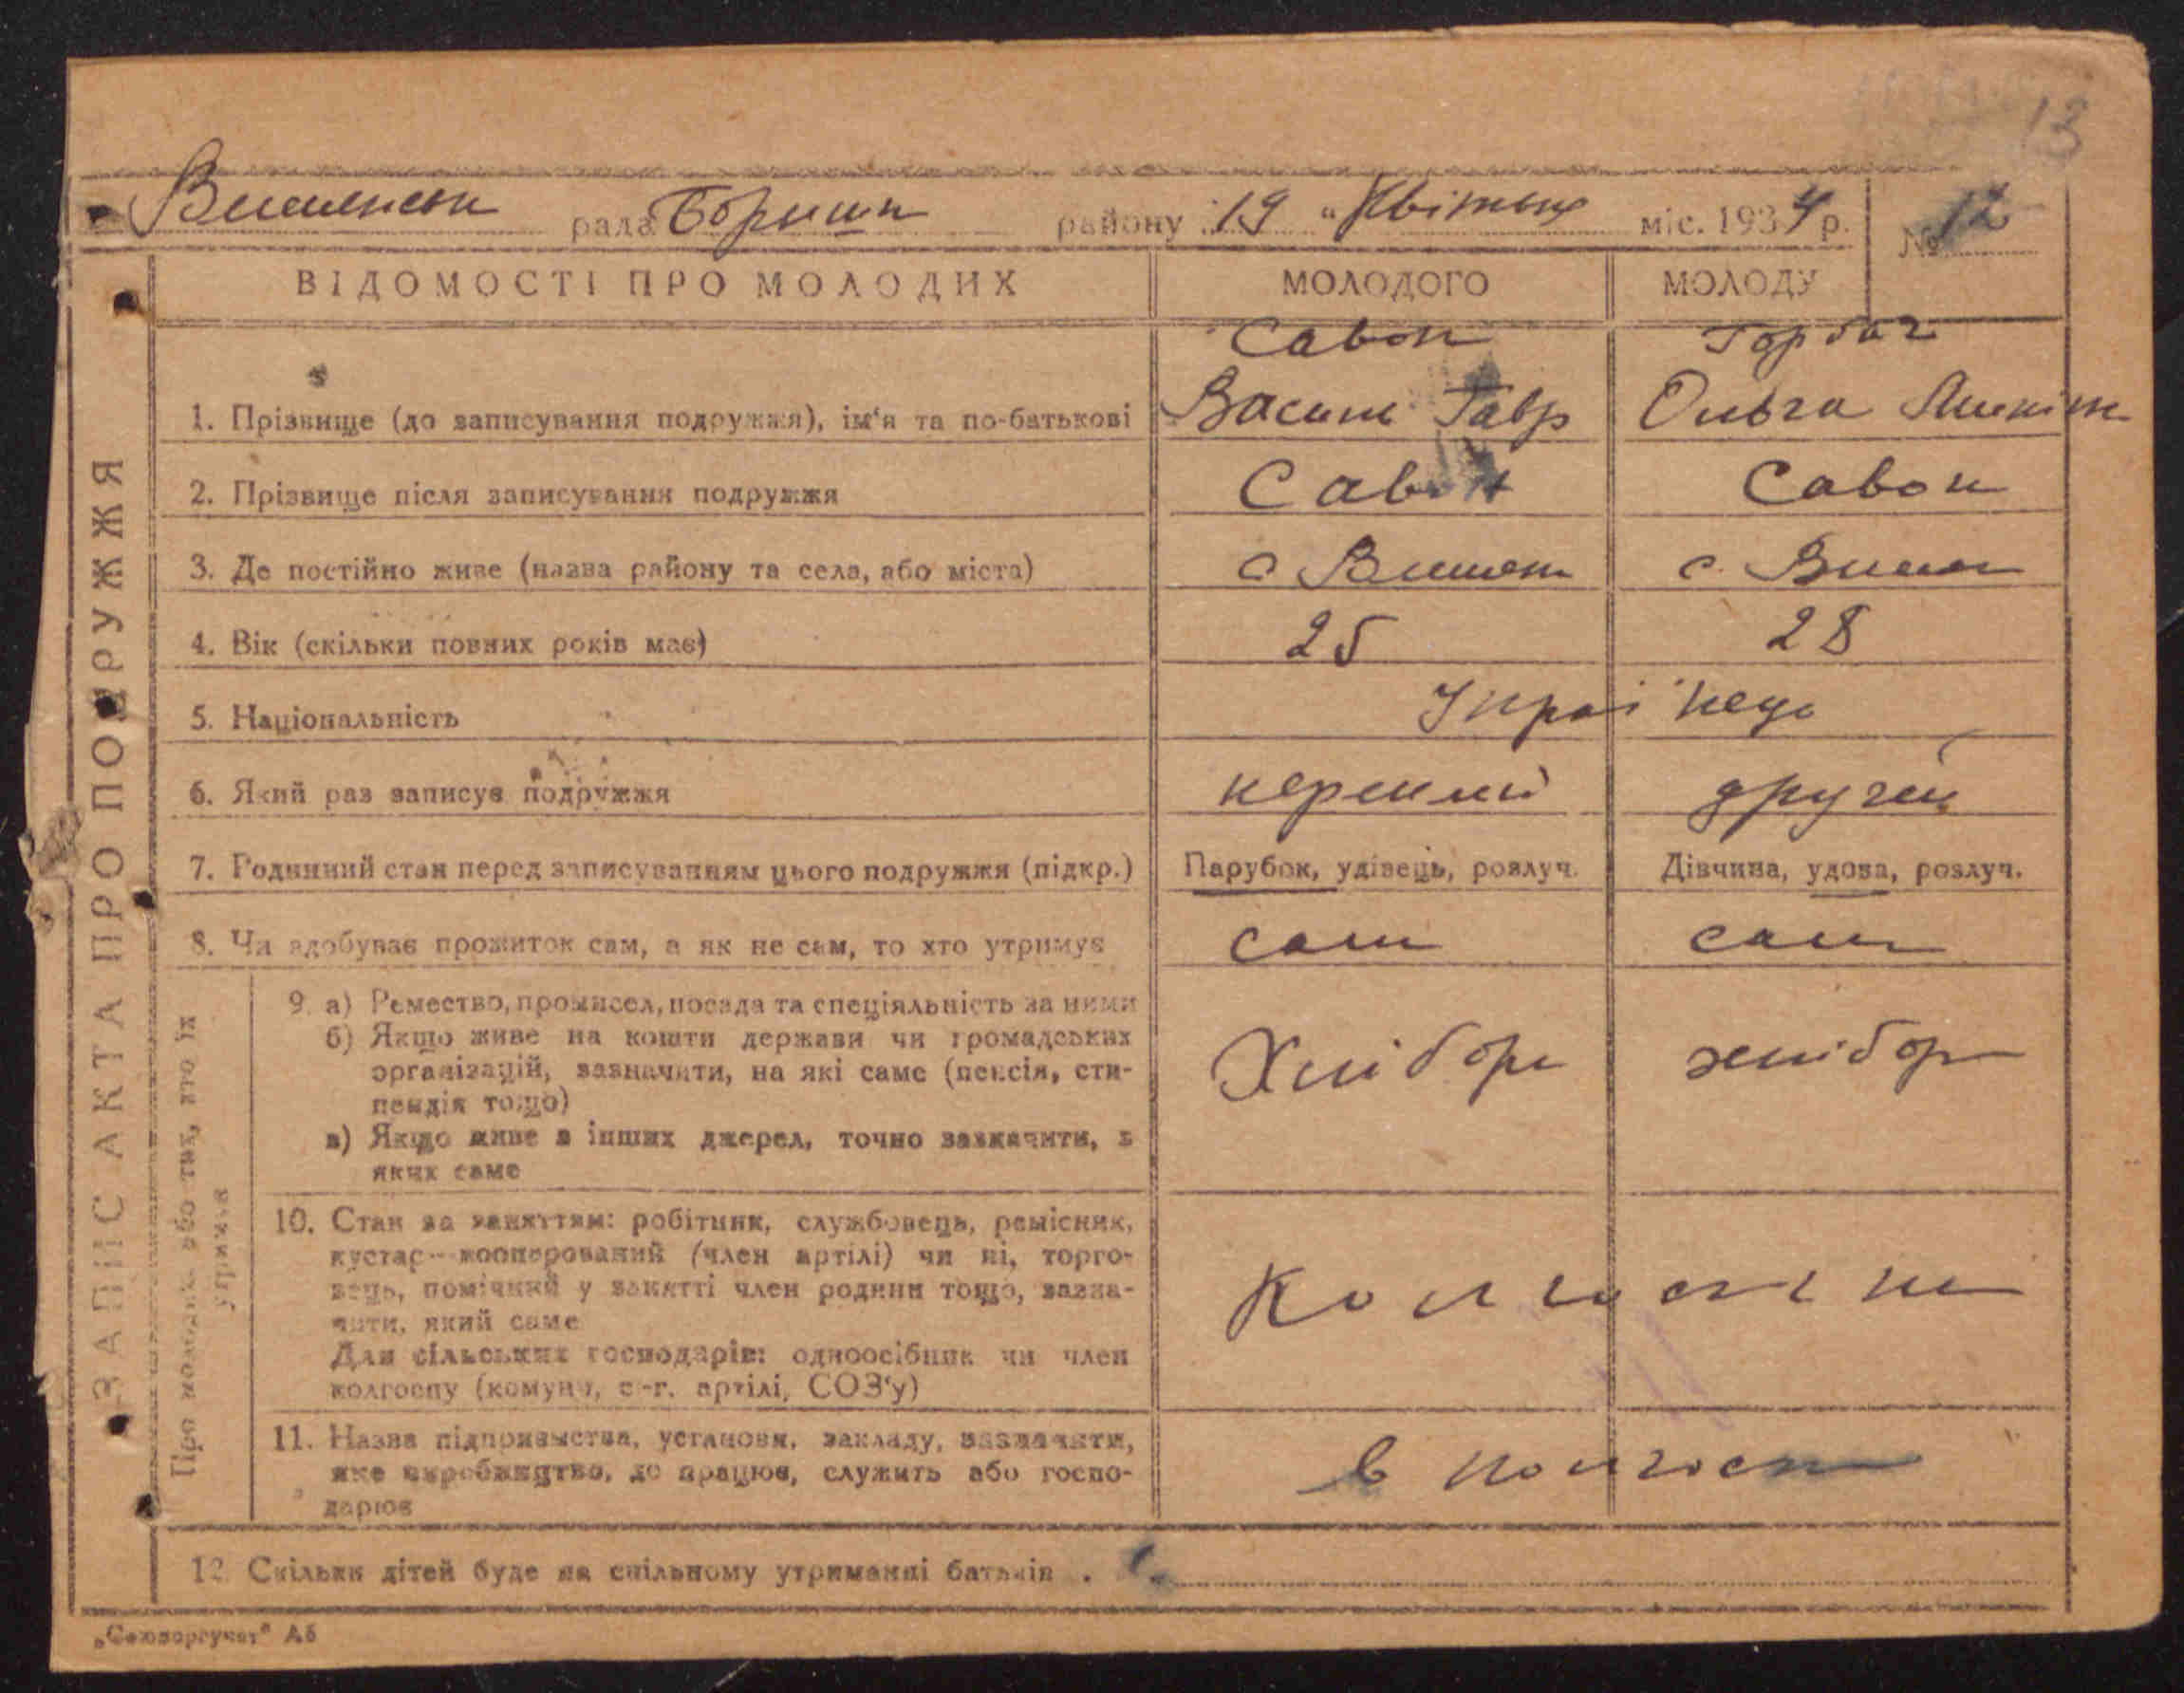 13
Вишеньки рада Бориш району 19 "Квітня міс. 1934 р. № 12
ВІДОМОСТІ ПРО МОЛОДИХ МОЛОДОГО МОЛОДУ
Савон Горбач
1. Прізвище (до записування подружжя), ім'я та по-батькові Василь Гавр Ольга Микит
2. Прізвище після записування подружжя Савон Савон
3. Де постійно живе (назва району та села, або міста) с Вишень с. Вишень
4. Вік (скільки повних років має) 25 28
5. Національність Українець
6. Який раз записує подружжя перший другий
7. Родинний стан перед записуванням цього подружжя (підкр.) Парубок, удівець, розлуч. Дівчина, удова, розлуч.
8. Чи здобуває прожиток сам, а як не сам, то хто утримує сам сам
9. а) Ремество, промисел, посада та спеціяльність за ними
б) Якщо живе на кошти держави чи громадських
організацій, зазначити, на які саме (пенсія, сти-
пендія тощо)
в) Якщо живе з інших джерел, точно зазначити, з
яких саме
Хлібор хлібор
10. Стан за заняттям: робітник, службовець, ремісник,
кустар—кооперований (член артілі) чи ні, торго-
вець, помічний у занятті член родини тощо, зазна-
чити, який саме
Для сільських господарів: одноосібник чи член
колгоспу (комуни, с-г. артілі, СОЗ'у)
Колгоспн
11. Назва підприємства, установи, закладу, зазначити,
яке виробництво, де працює, служить або госпо-
дарює
в колгосп
12. Скільки дітей буде на спільному утриманні батьків .
ЗАПИС АКТА ПРО ПОДРУЖЖЯ
Про молодих або тих, хто їх
утримує
„Союзоргучет" А5